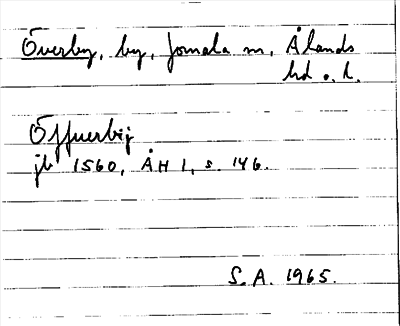 Överby, by, Jomala sn, Ålands
hd o. l.
Öffuerbij
jb 1560, ÅH 1, s. 146.
S.A. 1965.